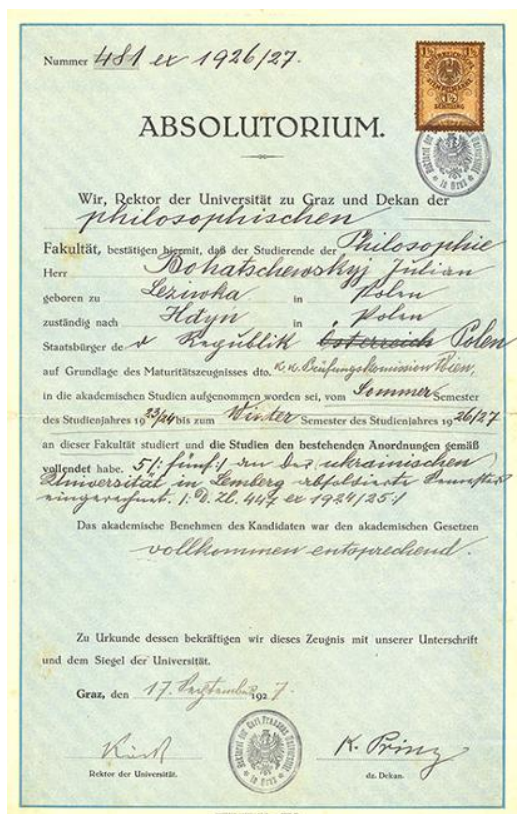 Nummer 481 ex 1926/27.
ABSOLUTORIUM.
Wir, Rektor der Universität zu Graz und Dekan der
philosophischen
Fakultät, bestätigen hiermit, daß der Studierende der Philosophie
Herr Bohatschewskyj Julian
geboren zu Leziwka in Polen
zuständig nach Hdyn in Polen
Staatsbürger der Republik Österreich Polen
auf Grundlage des Maturitätszeugnisses dto. k.k. Prüfungskommission Wien,
in die akademischen Studien aufgenommen worden sei, vom Sommer Semester
des Studienjahres 1923/24 bis zum Winter Semester des Studienjahres 1926/27
an dieser Fakultät studiert und die Studien den bestehenden Anordnungen gemäß
vollendet habe. 5/: fünf :/ an der ukrainischen
Universität in Lemberg absolvierte Semester
eingerechnet. /: D. Zl. 447 ex 1924/25 :/
Das akademische Benehmen des Kandidaten war den akademischen Gesetzen
vollkommen entsprechend.
Zu Urkunde dessen bekräftigen wir dieses Zeugnis mit unserer Unterschrift
und dem Siegel der Universität.
Graz, den 17. September 1927.
K. Prinz
Rektor der Universität.
dz. Dekan.